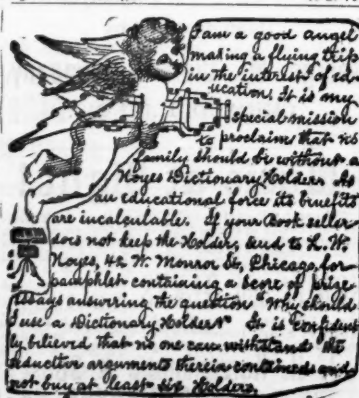 I am a good angel
making a flying trip
in the interest of ed
ucation. It is my
special mission
to proclaim that no
family should be without a
Noyes Dictionary Holder. As
an educational force its benefits
are incalculable. If your Book seller
does not keep the Holder, send to L. W.
Noyes, 42 W. Monroe St., Chicago, for
pamphlet containing a score of prize
essays answering the question "Why should
I use a Dictionary Holder" It is confident
ly believed that no one can withstand the
seductive arguments therein contained and
not buy at least six Holders.